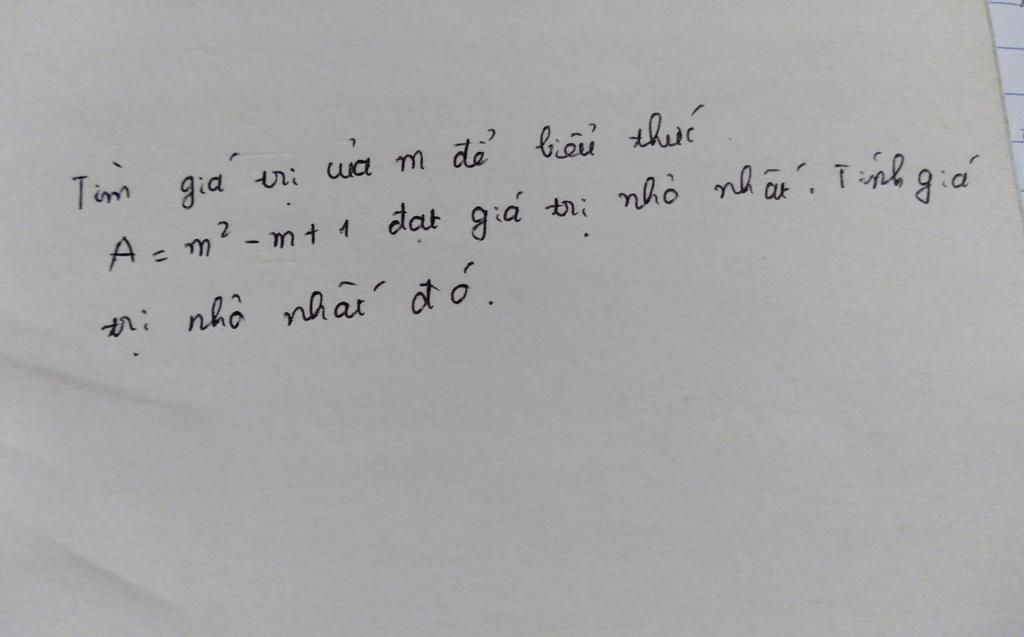 Tìm giá trị của m để biểu thức
A = m² - m + 1 đạt giá trị nhỏ nhất. Tính giá
trị nhỏ nhất đó.